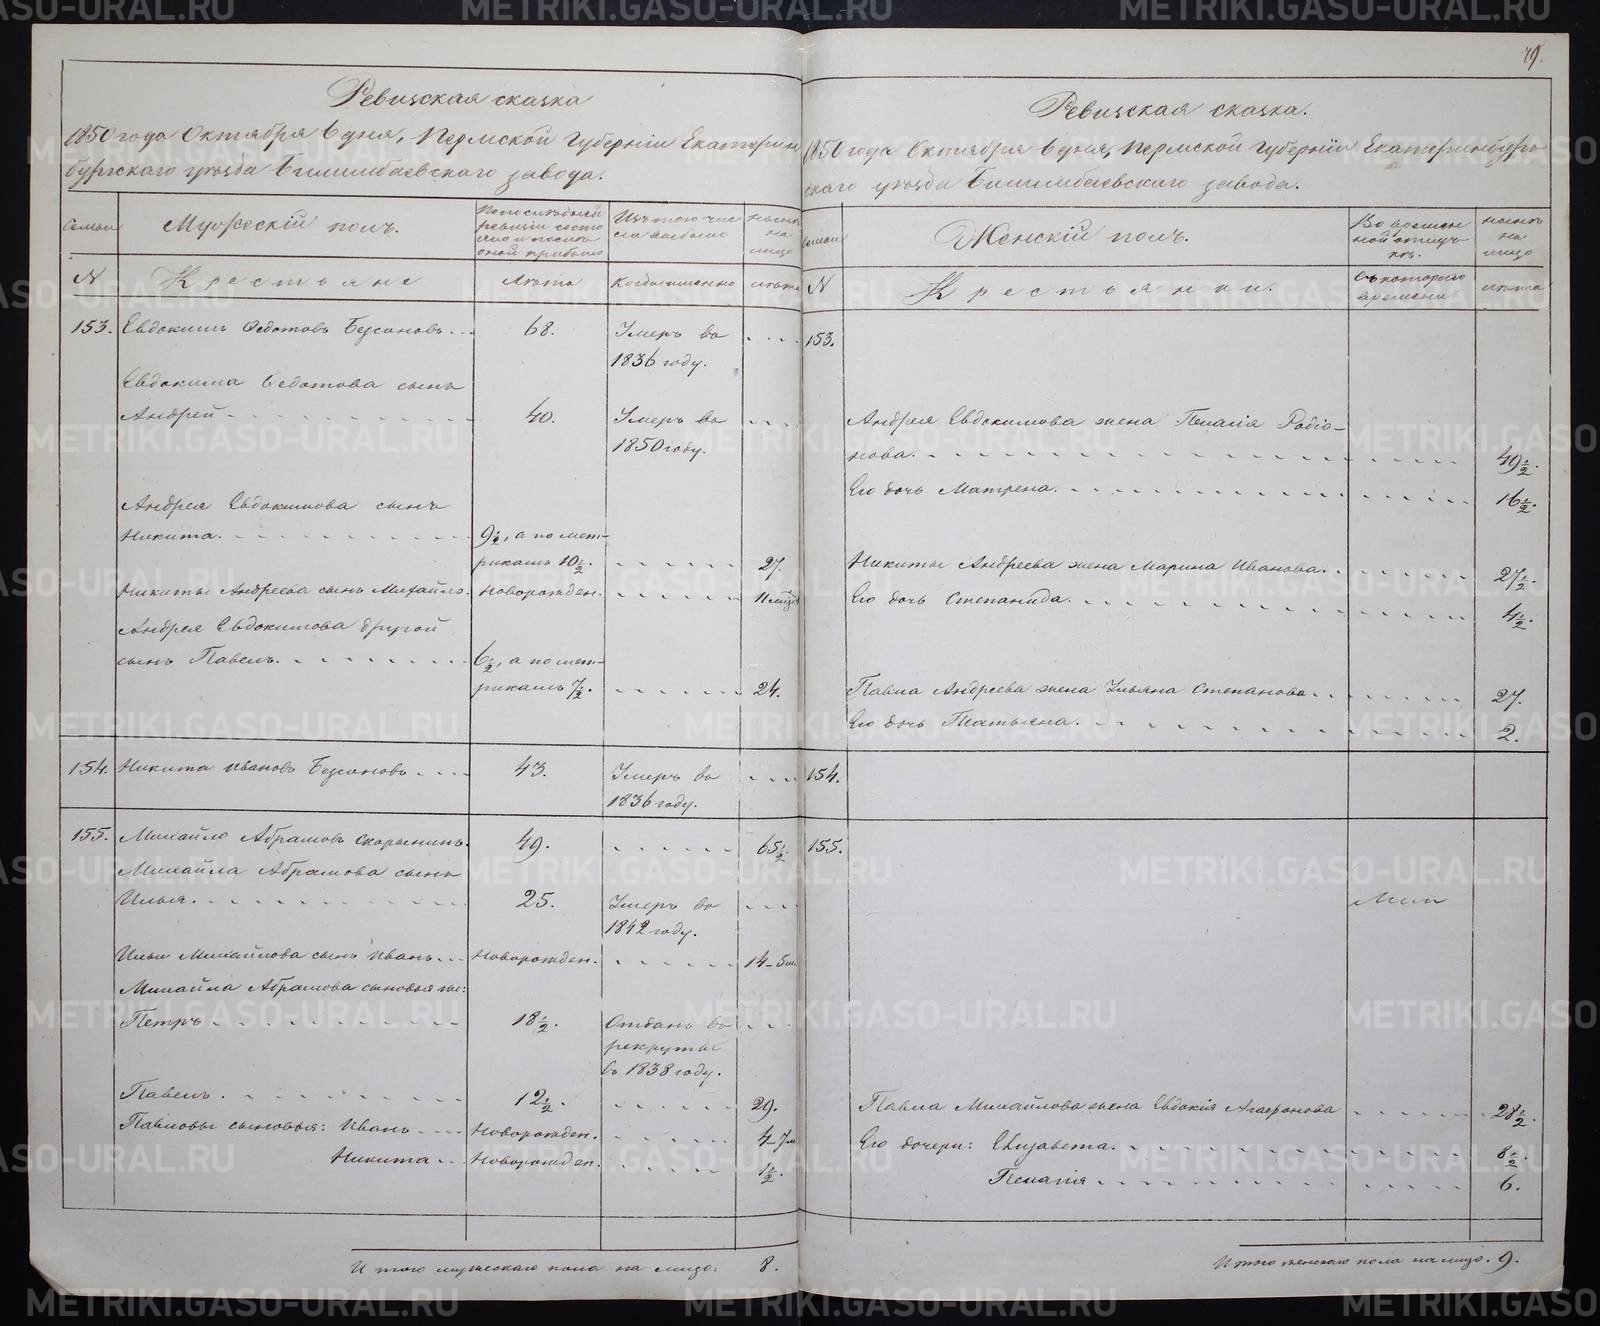 79.
Ревизская сказка
1850 года Октября 6 дня, Пермской Губерніи Екатерин
бургскаго уѣзда Билимбаевскаго завода.
Семьи
Мужескій полъ.
По послѣдней
ревизіи состо
яло и послѣ
оной прибыло
Изъ того чис
ла выбыло
нынѣ
на
лицо
N
Крестьяне
Лѣта
Когда именно
лѣта
153. Евдокимъ Ѳедотовъ Безсоновъ 68. Умеръ въ
1836 году.
Евдокима Ѳедотова сынъ
Андрей 40. Умеръ въ
1850 году.
Андрея Евдокимова сынъ
Никита. 9½, а по мет-
рикамъ 10½. 27.
Никиты Андреева сынъ Михайло. Новорожден. 11 мѣсц
Андрея Евдокимова другой
сынъ Павелъ. 6½, а по мет-
рикамъ 7½. 24.
154. Никита Ивановъ Безсоновъ 43. Умеръ въ
1836 году.
155. Михайло Абрамовъ Скорынинъ. 49. 65½
Михайла Абрамова сынъ
Илья. 25. Умеръ въ
1842 году.
Ильи Михайлова сынъ Иванъ Новорожден. 14-5 м.
Михайла Абрамова сыновья же:
Петръ 18½. Отданъ въ
рекруты
въ 1838 году.
Павелъ. 12½. 29.
Павловы сыновья: Иванъ Новорожден. 4-7 м
Никита Новорожден. 1½.
Итого мужескаго пола на лицо. 8.
Ревизская сказка.
1850 года Октября 6 дня, Пермской Губерніи Екатеринбург
скаго уѣзда Билимбаевскаго завода.
Семьи
Женскій полъ.
Во времен
ной отлуч
кѣ.
нынѣ
на
лицо
N
Крестьянки.
Съ котораго
времени
лѣта
153.
Андрея Евдокимова жена Пелагія Родіо-
нова. 49½.
Его дочь Матрена. 16½.
Никиты Андреева жена Марина Иванова. 27½.
Его дочь Степанида. 4½.
Павла Андреева жена Ульяна Степанова 27.
Его дочь Татьяна. 2.
154.
155.
Павла Михайлова жена Евдокія Агаѳонова 28½.
Его дочери: Елизавета. 8½.
Пелагія 6.
Итого женскаго пола на лицо. 9.
METRIKI.GASO-URAL.RU